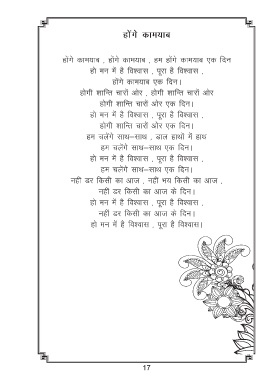 होंगे कामयाब
होंगे कामयाब , होंगे कामयाब , हम होंगे कामयाब एक दिन
हो मन में है विश्वास , पूरा है विश्वास ,
होंगे कामयाब एक दिन।
होगी शान्ति चारों ओर , होगी शान्ति चारों ओर
होगी शान्ति चारों ओर एक दिन।
हो मन में है विश्वास , पूरा है विश्वास ,
होगी शान्ति चारों ओर एक दिन।
हम चलेंगे साथ–साथ , डाल हाथों में हाथ
हम चलेंगे साथ–साथ एक दिन।
हो मन में है विश्वास , पूरा है विश्वास ,
हम चलेंगे साथ–साथ एक दिन।
नहीं डर किसी का आज , नहीं भय किसी का आज ,
नहीं डर किसी का आज के दिन।
हो मन में है विश्वास , पूरा है विश्वास ,
नहीं डर किसी का आज के दिन।
हो मन में है विश्वास , पूरा है विश्वास।
17